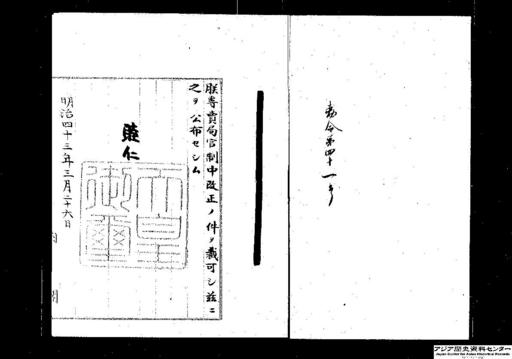 勅令第四十一号
朕専賣局官制中改正ノ件ヲ裁可シ茲ニ
之ヲ公布セシム
睦仁
天皇
御璽
明治四十三年三月二十六日
内閣
アジア歴史資料センター
Japan Center for Asian Historical Records